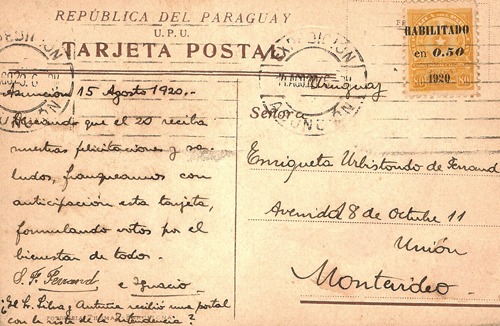 REPÚBLICA DEL PARAGUAY
U.P.U.
TARJETA POSTAL
HABILITADO
en 0.50
1920
EXPEDICIÓN
ASUNCIÓN
Asunción 15 Agosto 1920,.-
Deseando que el 20 reciba
nuestras felicitaciones y sa-
ludos, franqueamos con
anticipación esta tarjeta,
formulando votos por el
bienestar de todos.-
S. F. Ferrand e Ignacio.-
¿El Sr. Silva y Antuña recibió una postal
con la vista de la Intendencia?
Uruguay
Señora
Enriqueta Urbistondo de Ferrand
Avenida 18 de Octubre 11
Unión
Montevideo.-